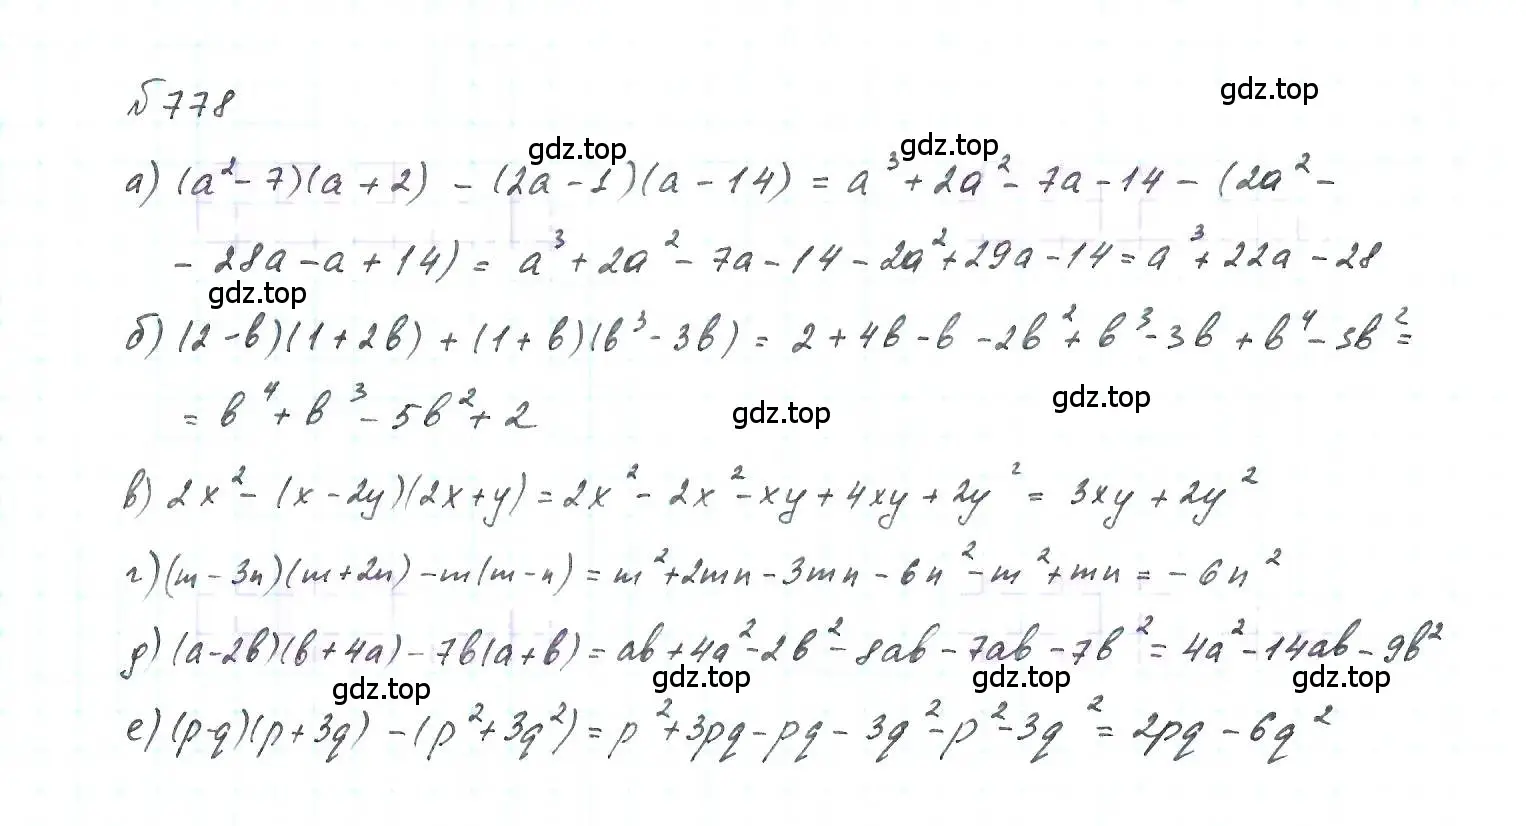 №778
gdz.top
gdz.top
gdz.top
а) (a²-7)(a+2) - (2a-1)(a-14) = a³+2a²-7a-14-(2a²-
-28a-a+14) = a³+2a²-7a-14-2a²+29a-14=a³+22a-28
gdz.top
б) (2-b)(1+2b)+(1+b)(b³-3b) = 2+4b-b-2b²+b³-3b+b⁴-3b²=
= b⁴+b³-5b²+2
gdz.top
gdz.top
в) 2x²-(x-2y)(2x+y)=2x²-2x²-xy+4xy+2y²=3xy+2y²
г) (m-3n)(m+2n)-m(m-n)=m²+2mn-3mn-6n²-m²+mn=-6n²
д) (a-2b)(b+4a)-7b(a+b)=ab+4a²-2b²-8ab-7ab-7b²=4a²-14ab-9b²
gdz.top
gdz.top
gdz.top
gdz.top
е) (p-q)(p+3q)-(p²+3q²)=p²+3pq-pq-3q²-p²-3q²=2pq-6q²